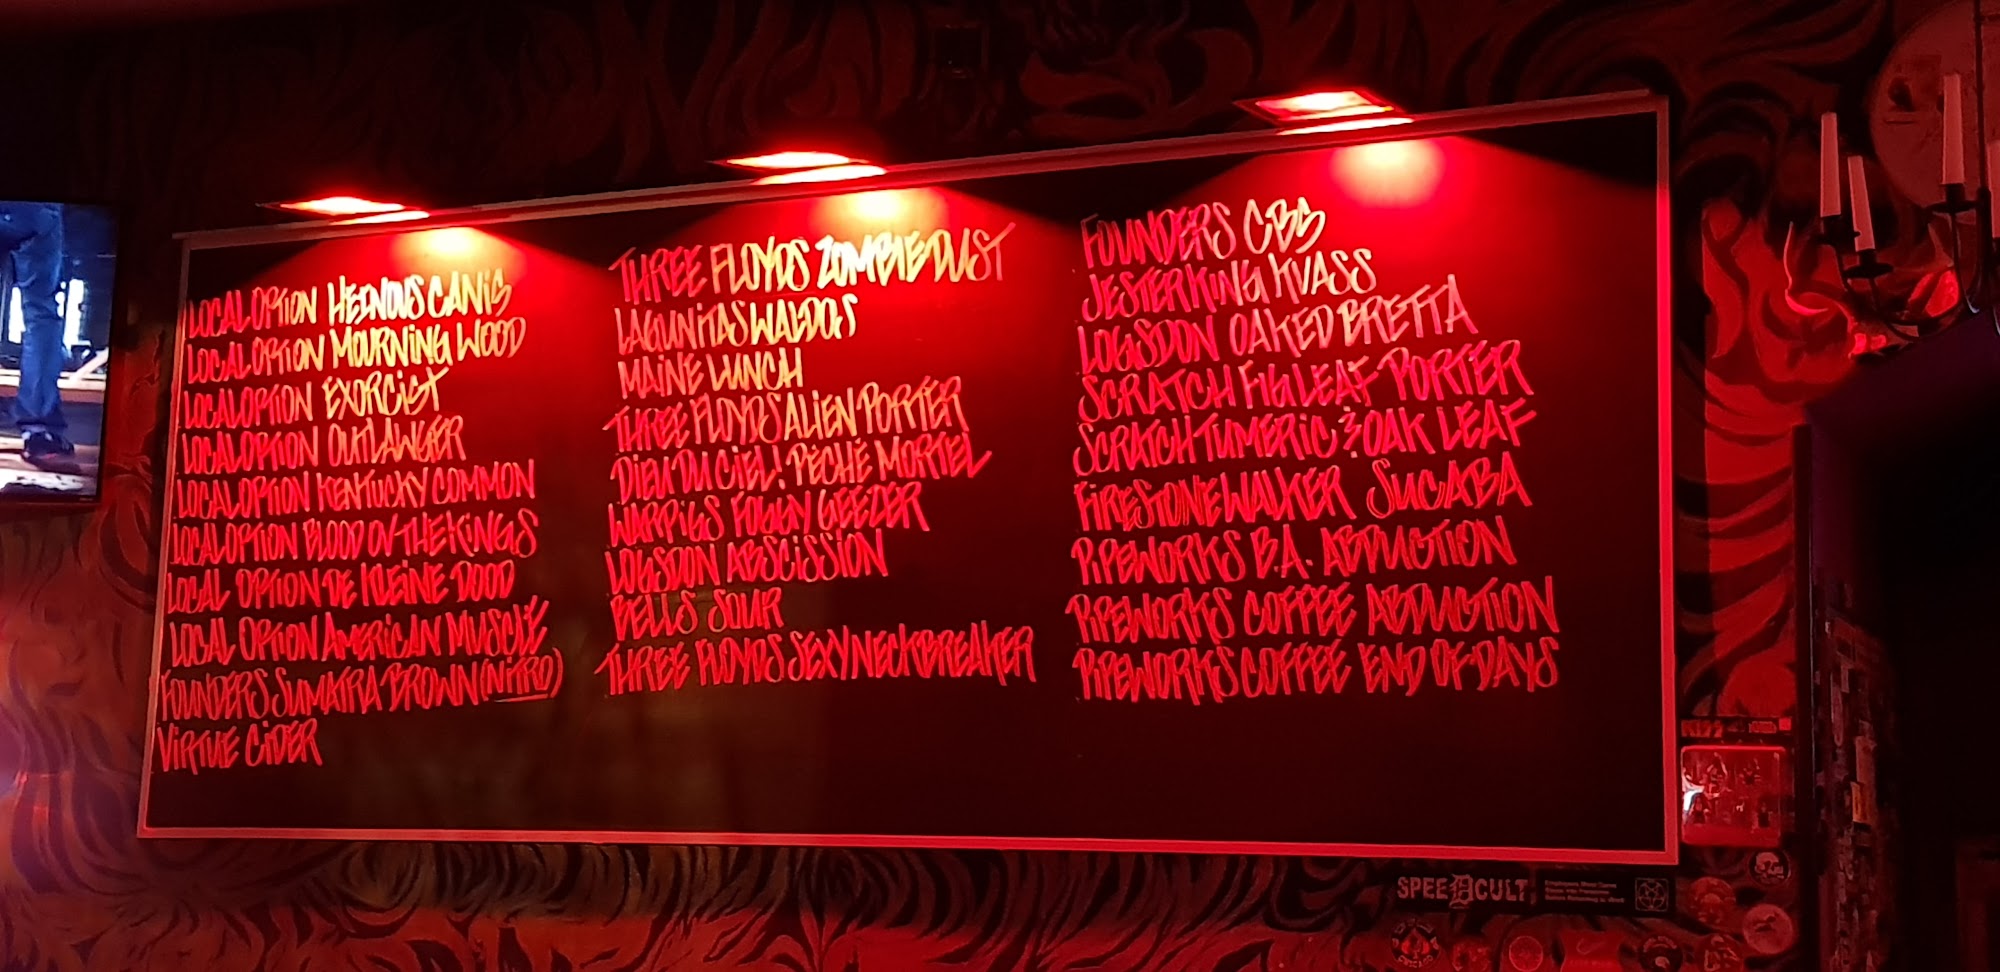 LOCAL OPTION HEINOUS CANIS
LOCAL OPTION MOURNING WOOD
LOCAL OPTION EXORCIST
LOCAL OPTION OUTLAWGER
LOCAL OPTION KENTUCKY COMMON
LOCAL OPTION BLOOD OV THE KINGS
LOCAL OPTION DE KLEINE DOOD
LOCAL OPTION AMERICAN MUSCLE
FOUNDERS SUMATRA BROWN (NITRO)
VIRTUE CIDER
THREE FLOYDS ZOMBIE DUST
LAGUNITAS WALDOS
MAINE LUNCH
THREE FLOYDS ALIEN PORTER
DIEU DU CIEL! PÉCHÉ MORTEL
WARPIGS FOGGY GEEZER
LOGSDON ABSCISSION
BELLS SOUR
THREE FLOYDS SEXY NECKBREAKER
FOUNDERS CBS
JESTER KING KVASS
LOGSDON OAKED BRETTA
SCRATCH FIG LEAF PORTER
SCRATCH TUMERIC & OAK LEAF
FIRESTONE WALKER SUCABA
PIPEWORKS B.A. ABDUCTION
PIPEWORKS COFFEE ABDUCTION
PIPEWORKS COFFEE END OF DAYS
SPEEDCULT